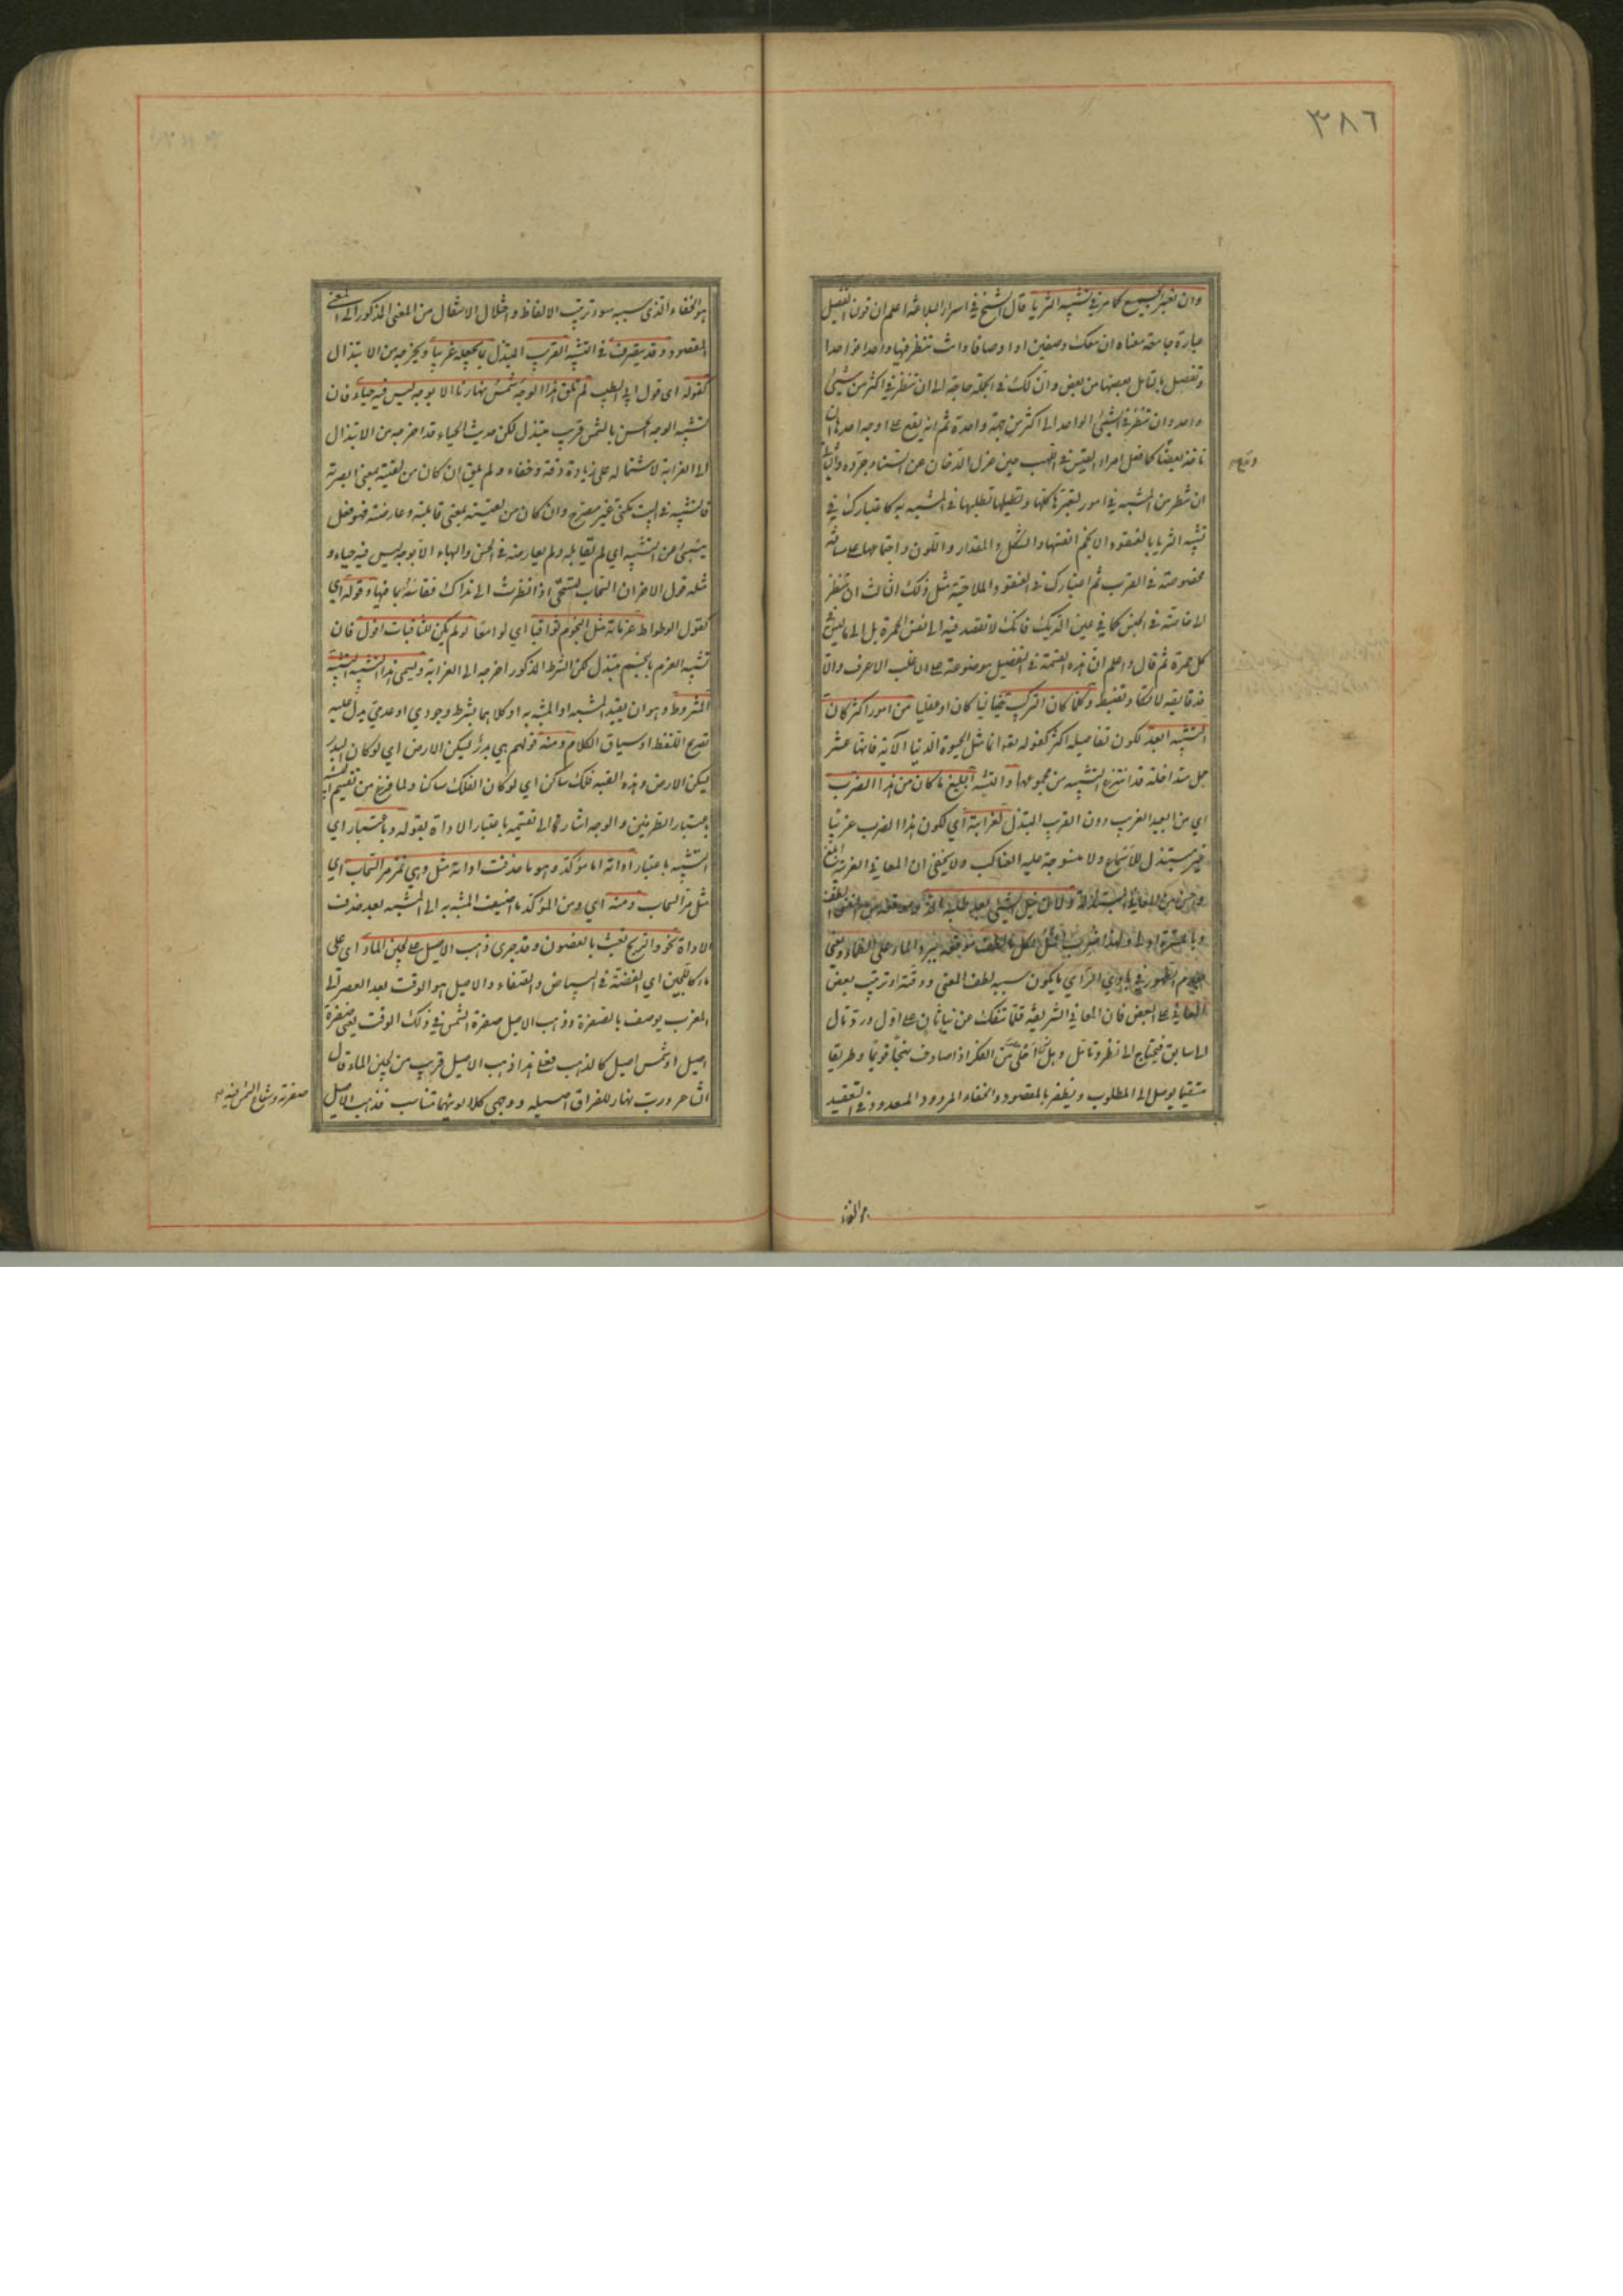 ٣٨٦
وان تعتبر الجميع كما مر في تشبيه الثريا قال الشيخ في اسرار البلاغة اعلم ان قولنا التفصيل
عبارة جامعة معناه ان معك وصفين او اوصافا وانت تنظر فيها واحدا فواحدا
وتفصل بالتامل بعضها من بعض وان لك في الجملة حاجة الى ان تنظر في اكثر من شيئ
واحد وان تنظر في الشيئ الواحد الى اكثر من جهة واحدة ثم انه يقع على اوجه احدها ان
تاخذ بعضا كما فعل امرء القيس في اللهب حين عزل الدخان عن السنا وجرده والثاني
ان تنظر من المشبه في امور لتعتبرها كلها وتطلبها في المشبه به كاعتبارك في
تشبيه الثريا بالعنقود الانجم انفسها والشكل والمقدار واللون واجتماعها على مسافة
مخصوصة في القرب ثم اعتبارك في العنقود الملاحية مثل ذلك الثالث ان تنظر
الى خاصة في الجنس كما في عين الديك فانك لا تقصد فيه الى نفس الحمرة بل الى ما ليس في
كل حمرة ثم قال واعلم ان هذه القسمة في التفصيل موضوعة على الاغلب الاعرف والا
فدقايقه لا تكاد تضبط وكلما كان التركيب خياليا كان او عقليا من امور اكثر كان
التشبيه ابعد لكون تفاصيله اكثر كقوله تعه انما مثل الحيوة الدنيا الآية فانها عشر
جمل متداخلة قد انتزع التشبيه من مجموعها والتشبيه البليغ ما كان من هذا الضرب
اي من البعيد الغريب دون القريب المبتذل لغرابته اي لكون هذا الضرب غريبا
غير مبتذل للاسماع ولا منسوجة عليه العناكب ولا يخفى ان المعاني الغريبة ابلغ
واحسن من المعاني المبتذلة ولان نيل الشيئ بعد طلبه الذ وموقعه من النفس الطف
وبالمسرة اولى ولهذا ضرب المثل لكل ما لطف موقعه ببرد الماء على الظماء ومعنى
عدم الظهور في بادي الراي ما يكون سببه لطف المعنى ودقته او ترتيب بعض
المعاني على البعض فان المعاني الشريفة قلما تنفك عن بناء ثان على اول ورد تال
الى سابق فيحتاج الى نظر وتامل وهل شيئ احلى من الفكر اذا صادف نهجا قويما وطريقا
مستقيما يوصل الى المطلوب ويظفر بالمقصود والخفاء المردود المعدود في التعقيد
هو الخفاء
هو الخفاء الذي سببه سوء ترتيب الالفاظ واختلال الانتقال من المعنى المذكور الى المعنى
المقصود وقد يتصرف في التشبيه القريب المبتذل بما يجعله غريبا ويخرجه من الابتذال
كقوله اي قول ابي الطيب لم تلق هذا الوجه شمس نهارنا الا بوجه ليس فيه حياء فان
تشبيه الوجه الحسن بالشمس قريب مبتذل لكن حديث الحياء قد اخرجه من الابتذال
الى الغرابة لاشتماله على زيادة دقة وخفاء ولم تلق ان كان من لقيته بمعنى ابصرته
فالتشبيه في البيت مكني غير مصرح وان كان من لقيته بمعنى قابلته وعارضته فهو فعل
ينبئ عن التشبيه اي لم تقابله ولم تعارضه في الحسن والبهاء الا بوجه ليس فيه حياء و
مثله قول الاخر ان السحاب لتستحي اذا نظرت الى نداك فقاسته بما فيها وقوله اي
كقول الوطواط عزماته مثل النجوم ثواقبا اي لوامعا لو لم يكن للثاقبات افول فان
تشبيه العزم بالنجم مبتذل لكن الشرط المذكور اخرجه الى الغرابة ويسمى هذا التشبيه التشبيه
المشروط وهو ان يقيد المشبه او المشبه به او كلاهما بشرط وجودي او عدمي يدل عليه
تصريح اللفظ او سياق الكلام ومنه قولهم هي بدر يسكن الارض اي لو كان البدر
يسكن الارض وهذه القبه فلك ساكن اي لو كان الفلك ساكنا ولما فرغ من تقسيم التشبيه
باعتبار الطرفين والوجه اشار الى تقسيمه باعتبار الاداة بقوله وباعتبار اي
التشبيه باعتبار اداته اما مؤكد وهو ما حذفت اداته مثل وهي تمر مر السحاب اي
مثل مر السحاب ومنه اي ومن المؤكد ما اضيف المشبه به الى المشبه بعد حذف
الاداة نحو والريح تعبث بالغصون وقد جرى ذهب الاصيل على لجين الماء اي على
ماء كاللجين اي الفضة في البياض والصفاء والاصيل هو الوقت بعد العصر الى
المغرب يوصف بالصفرة وذهب الاصيل صفرة الشمس في ذلك الوقت يعني صفرة
اصيل او شمس اصيل كالذهب فعلى هذا ذهب الاصيل قريب من لجين الماء قال
الشاعر ورب نهار للفراق اصيله ووجهي كلا لونيهما متناسب فذهب الاصيل
صفرته وشعاع الشمس فيه